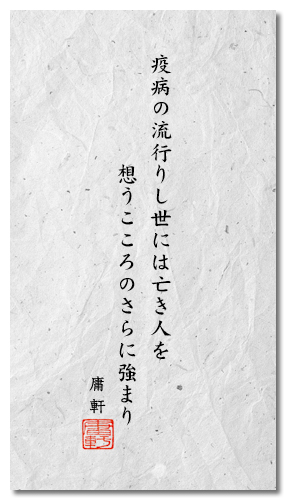 疫病の流行りし世には亡き人を
想うこころのさらに強まり
庸軒
庸軒